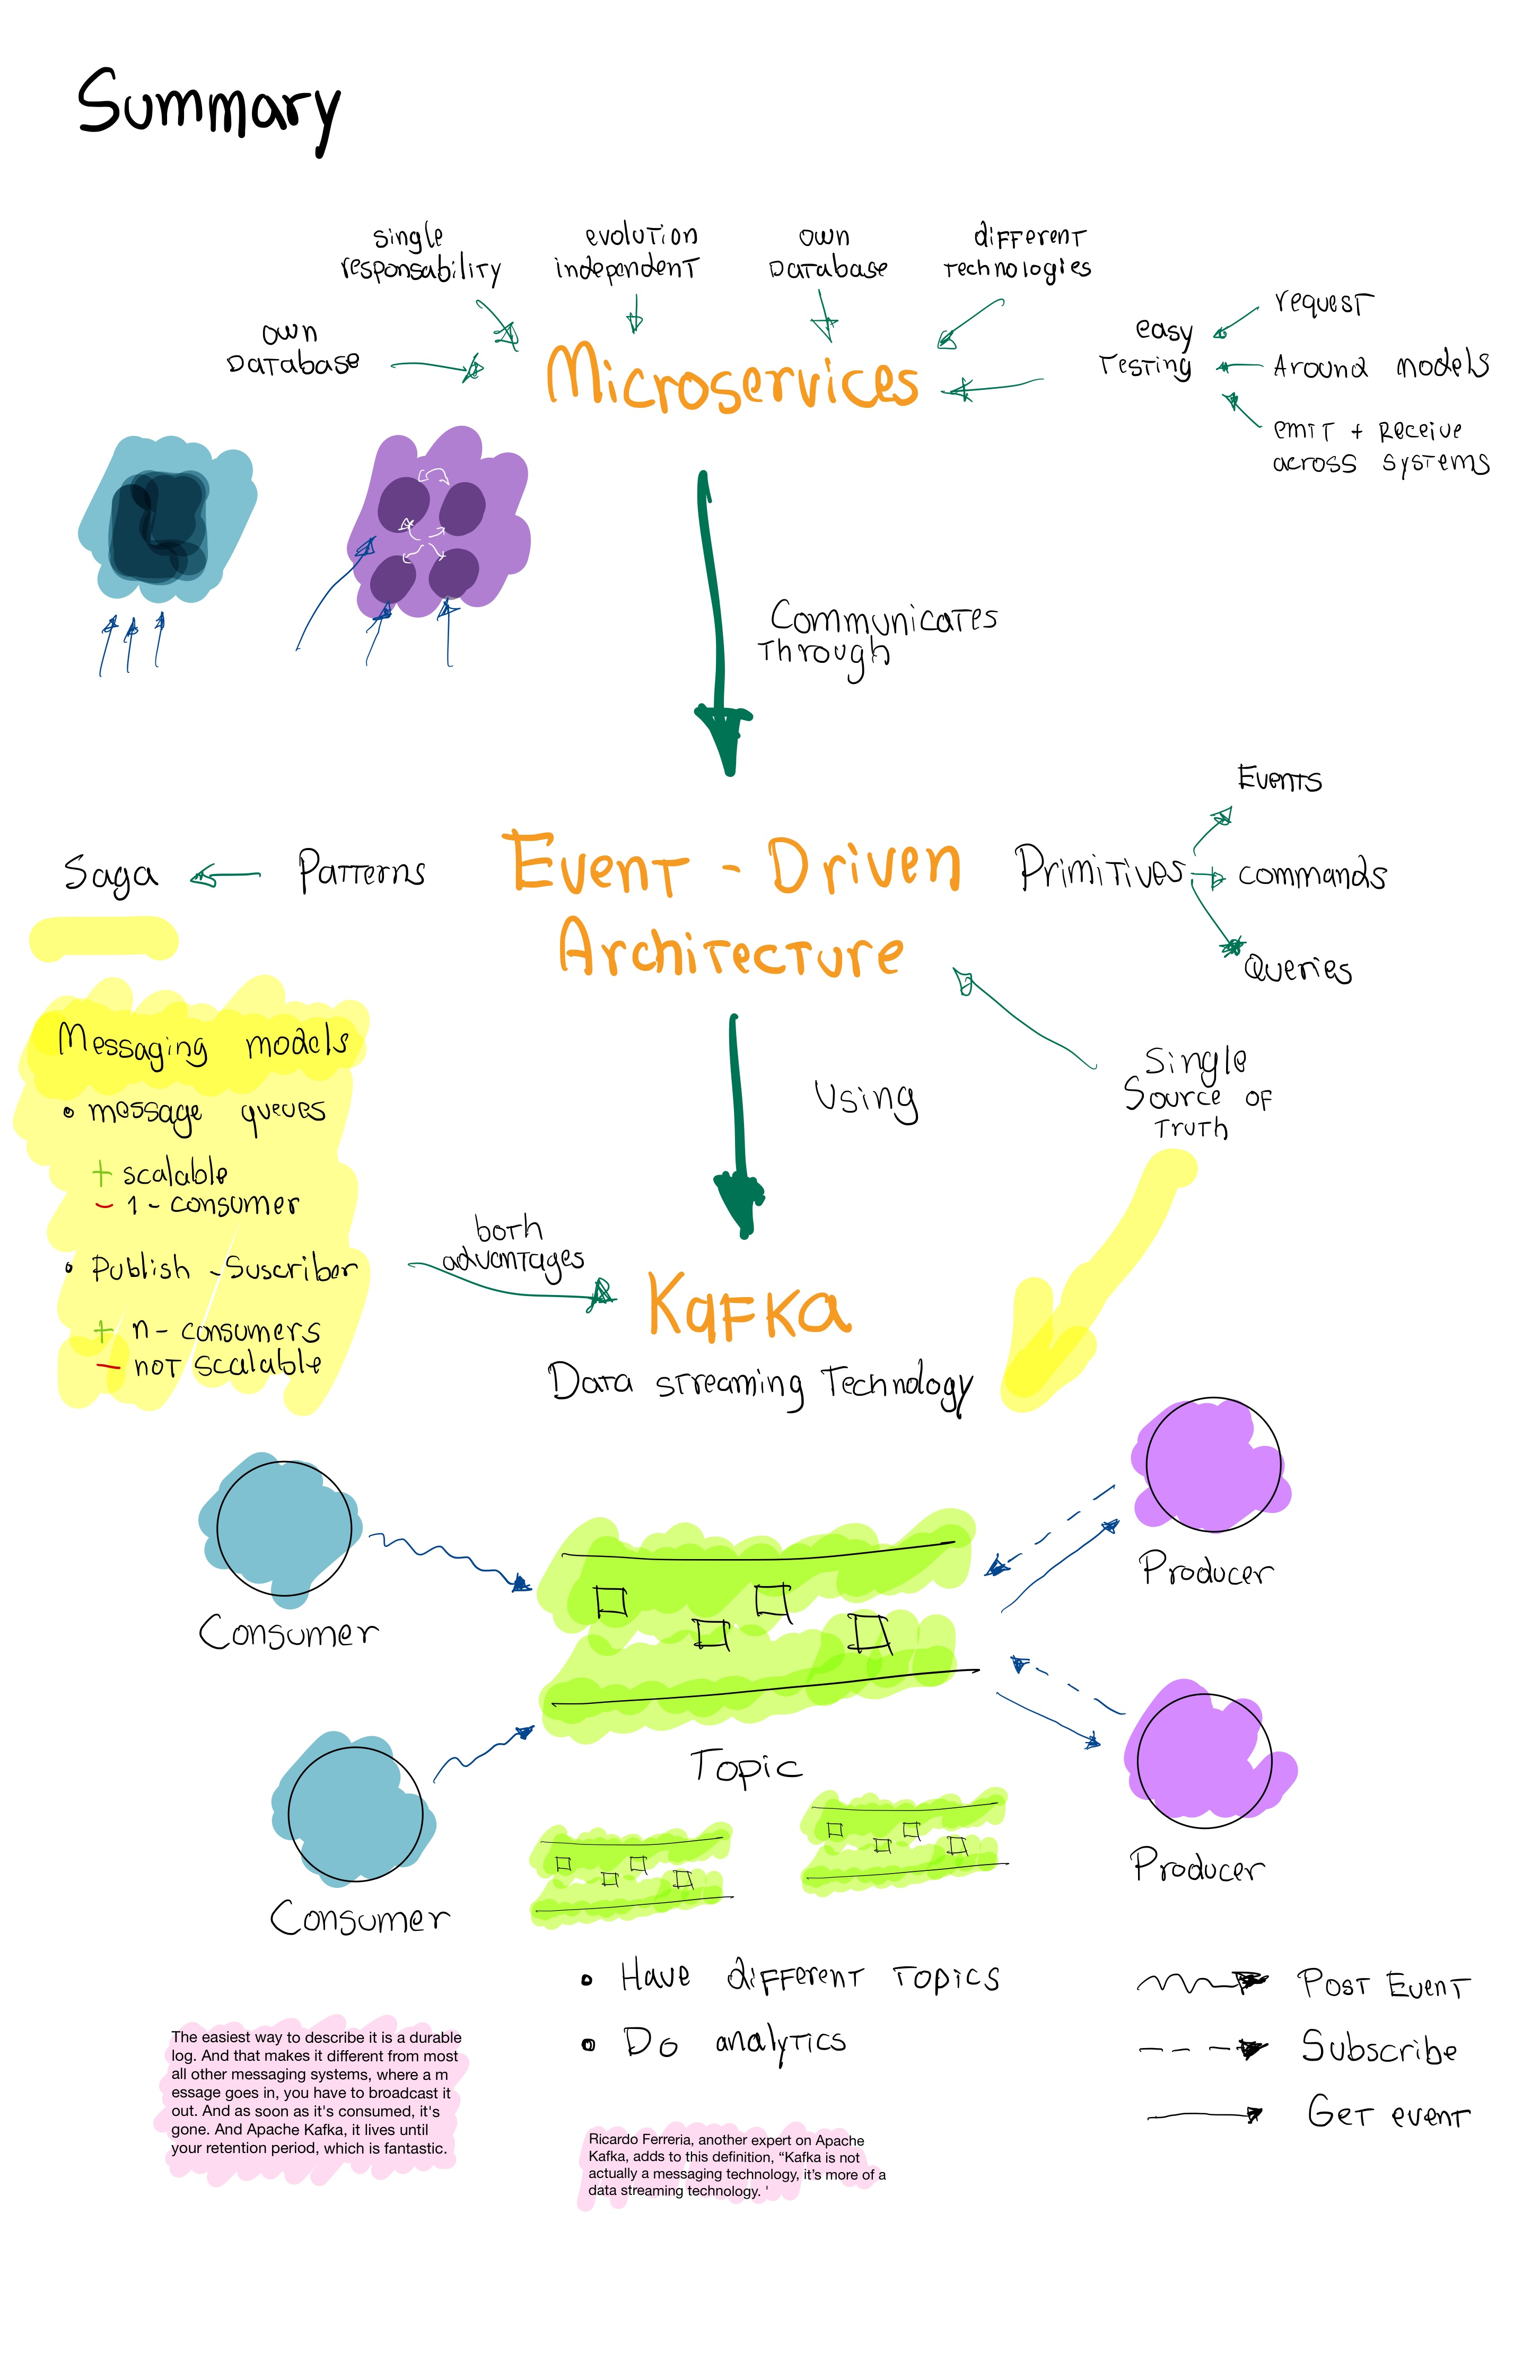 Summary
single
responsability
evolution
independent
own
Database
different
technologies
own
Database
Microservices
easy
Testing
request
Around models
emit + Receive
across systems
Communicates
Through
Saga
Patterns
Event - Driven
Architecture
Primitives
Events
commands
Queries
Messaging models
message queues
+ scalable
- 1 - consumer
Publish - Suscriber
+ n - consumers
- not scalable
Using
Single
Source of
Truth
both
advantages
Kafka
Data streaming Technology
Consumer
Producer
Topic
Consumer
Producer
Have different Topics
Do analytics
Post Event
Subscribe
Get event
The easiest way to describe it is a durable
log. And that makes it different from most
all other messaging systems, where a m
essage goes in, you have to broadcast it
out. And as soon as it's consumed, it's
gone. And Apache Kafka, it lives until
your retention period, which is fantastic.
Ricardo Ferreria, another expert on Apache
Kafka, adds to this definition, “Kafka is not
actually a messaging technology, it’s more of a
data streaming technology. '